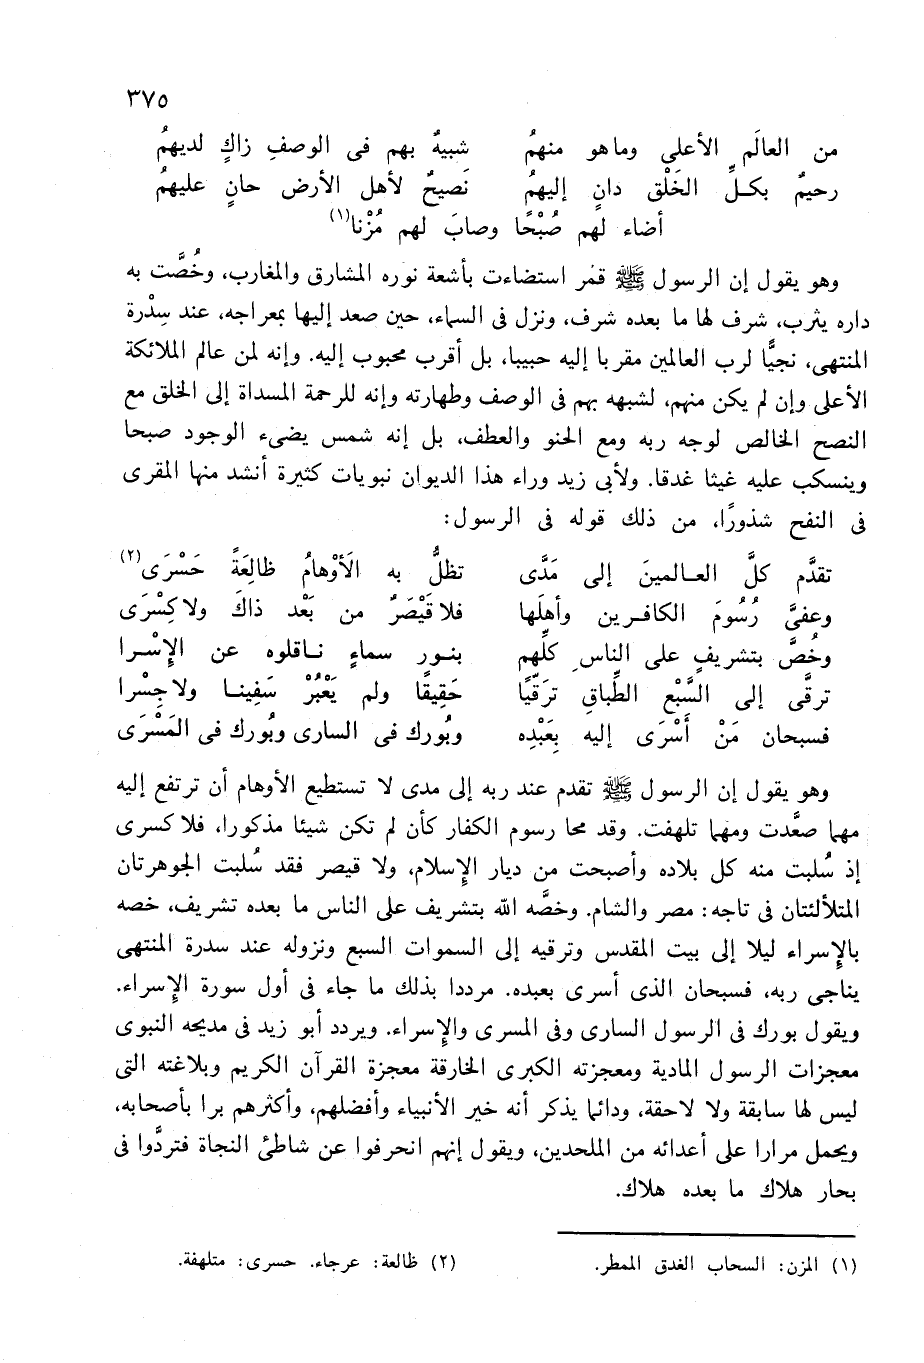 ٣٧٥
من العالَمِ الأعلى وماهو منهمُ شبيهٌ بهم فى الوصفِ زاكٍ لديهمُ
رحيمٌ بكلِّ الخَلْق دانٍ إليهمُ نَصيحٌ لأهل الأرض حانٍ عليهمُ
أضاء لهم صُبْحًا وصابَ لهم مُزْنا(١)
وهو يقول إن الرسول ﷺ قمُر استضاءت بأشعة نوره المشارق والمغارب، وخُصَّت به
داره يثرب، شرف لها ما بعده شرف، ونزل فى السماء، حين صعد إليها بمعراجه، عند سِدْرة
المنتهى، نجيًّا لرب العالمين مقربا إليه حبيبا، بل أقرب محبوب إليه. وإنه لمن عالم الملائكة
الأعلى وإن لم يكن منهم، لشبهه بهم فى الوصف وطهارته وإنه للرحمة المسداة إلى الخلق مع
النصح الخالص لوجه ربه ومع الحنو والعطف، بل إنه شمس يضىء الوجود صبحا
وينسكب عليه غيثا غدقا. ولأبى زيد وراء هذا الديوان نبويات كثيرة أنشد منها المقرى
فى النفح شذورًا، من ذلك قوله فى الرسول:
تقدَّم كلَّ العـالمينَ إلى مَدًى تظلُّ به الَأوْهامُ ظالِعَةً حَسْرَى(٢)
وعفىَّ رُسُومَ الكافـرين وأهلَها فلا قَيْصَرٌ من بَعْد ذاكَ ولا كِسْرَى
وخُصَّ بتشريفٍ على الناسِ كلِّهم بنـور سماءٍ نـاقلوه عن الإسْـرا
ترقَّى إلى السَّبْعِ الطِّباقِ ترَقِّيًا حَقِيقًا ولم يَعْبُرْ سَفِينـا ولا جِسْرا
فسبحان مَنْ أَسْرَى إليه بِعَبْدِه وبُورك فى السارى وبُورك فى المَسْرَى
وهو يقول إن الرسول ﷺ تقدم عند ربه إلى مدى لا تستطيع الأوهام أن ترتفع إليه
مهما صعَّدت ومهما تلهفت. وقد محا رسوم الكفار كأن لم تكن شيئا مذكورا، فلا كسرى
إذ سُلبت منه كل بلاده وأصبحت من ديار الإسلام، ولا قيصر فقد سُلبت الجوهرتان
المتلألئتان فى تاجه: مصر والشام. وخصَّه الله بتشريف على الناس ما بعده تشريف، خصه
بالإسراء ليلا إلى بيت المقدس وترقيه إلى السموات السبع ونزوله عند سدرة المنتهى
يناجى ربه، فسبحان الذى أسرى بعبده. مرددا بذلك ما جاء فى أول سورة الإسراء.
ويقول بورك فى الرسول السارى وفى المسرى والإسراء. ويردد أبو زيد فى مديحه النبوى
معجزات الرسول المادية ومعجزته الكبرى الخارقة معجزة القرآن الكريم وبلاغته التى
ليس لها سابقة ولا لاحقة، ودائما يذكر أنه خير الأنبياء وأفضلهم، وأكثرهم برا بأصحابه،
ويحمل مرارا على أعدائه من الملحدين، ويقول إنهم انحرفوا عن شاطئ النجاة فتردَّوا فى
بحار هلاك ما بعده هلاك.
(١) المزن: السحاب الغدق الممطر. (٢) ظالعة: عرجاء. حسرى: متلهفة.